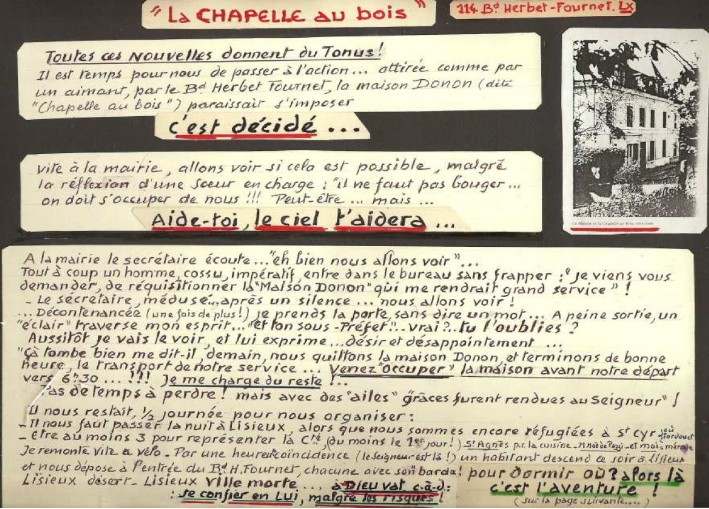 "La CHAPELLE au bois"
114 Bd Herbet-Fournet. Lx
Toutes ces Nouvelles donnent du Tonus!
Il est temps pour nous de passer à l'action... attirée comme par
un aimant, par le Bd Herbet Fournet, la maison Donon (dite
"Chapelle au bois") paraissait s'imposer
c'est décidé ...
vite à la mairie, allons voir si cela est possible, malgré
la réflexion d'une sœur en charge : "il ne faut pas bouger...
on doit s'occuper de nous !!! Peut-être ... mais ...
Aide-toi, le ciel t'aidera ...
A la mairie le secrétaire écoute..."eh bien nous allons voir"...
Tout à coup un homme, cossu, impératif, entre dans le bureau sans frapper : "je viens vous
demander, de réquisitionner la "Maison Donon" qui me rendrait grand service" !
- Le secrétaire, méduse...après un silence ... nous allons voir !
... Décontenancée (une fois de plus!) je prends la porte, sans dire un mot... A peine sortie, un
"éclair" traverse mon esprit..."et ton sous-Préfet"..vrai?..tu l'oublies ?
Aussitôt je vais le voir, et lui exprime...désir et désappointement ...
"Çà tombe bien me dit-il, demain, nous quittons la maison Donon, et terminons de bonne
heure, le transport de notre service ... Venez "occuper" la maison avant notre départ
vers 6h30 ... ?!! Je me charge du reste !..
Pas de temps à perdre ! mais avec des "ailes" grâces furent rendues au Seigneur" !
Il nous restait, 1/2 journée pour nous organiser :
- Il nous faut passer la nuit à Lisieux, alors que nous sommes encore réfugiées à St Cyr
- Etre au moins 3 pour représenter la Cté (du moins le 1er jour!) St Agnès p.r la cuisine - et moi,
Je remonte vite à vélo - Par une heureuse coïncidence (le seigneur est là!) un habitant descend ce soir à Lisieux
et nous dépose à l'entrée du Bd H. Fournet, chacune avec son barda! pour dormir où? alors là
Lisieux désert - Lisieux Ville morte ... à Dieu vat c-à-d: c'est l'aventure !
: se confier en Lui, malgré les risques ! (sur la page suivante....)